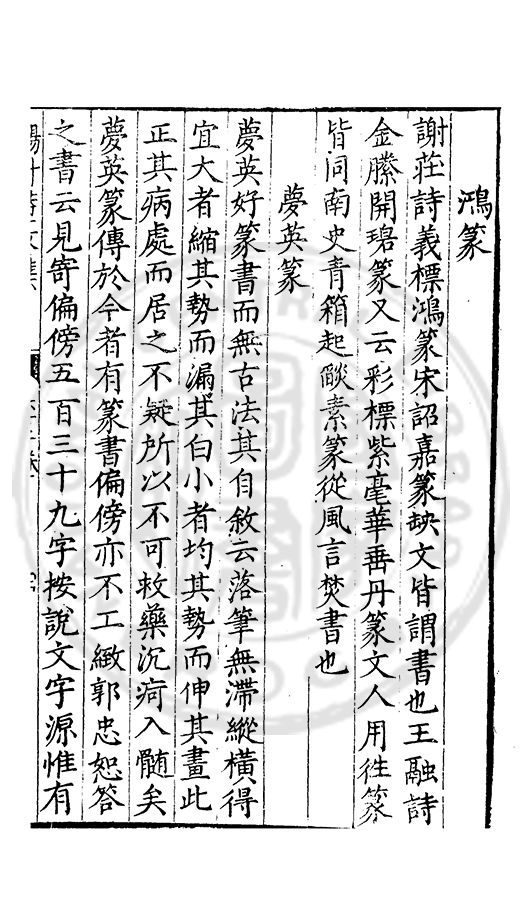 鴻篆
謝莊詩義標鴻篆宋詔嘉篆缺文皆謂書也王融詩
金縢開碧篆又云彩標紫毫華垂丹篆文人用徃篆
皆同南史青箱起燄素篆從風言焚書也
夢英篆
夢英好篆書而無古法其自敘云落筆無滯縱橫得
宜大者縮其勢而漏其白小者均其勢而伸其畫此
正其病處而居之不疑所以不可救藥沉疴入髄矣
夢英篆傳於今者有篆書偏傍亦不工緻郭忠恕答
之書云見寄偏傍五百三十九字按說文字源惟有